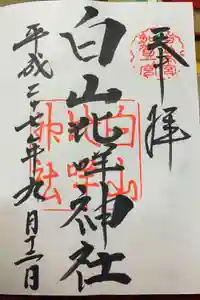 奉拝
白山比咩神社
平成二十七年九月十二日
白山比咩神社